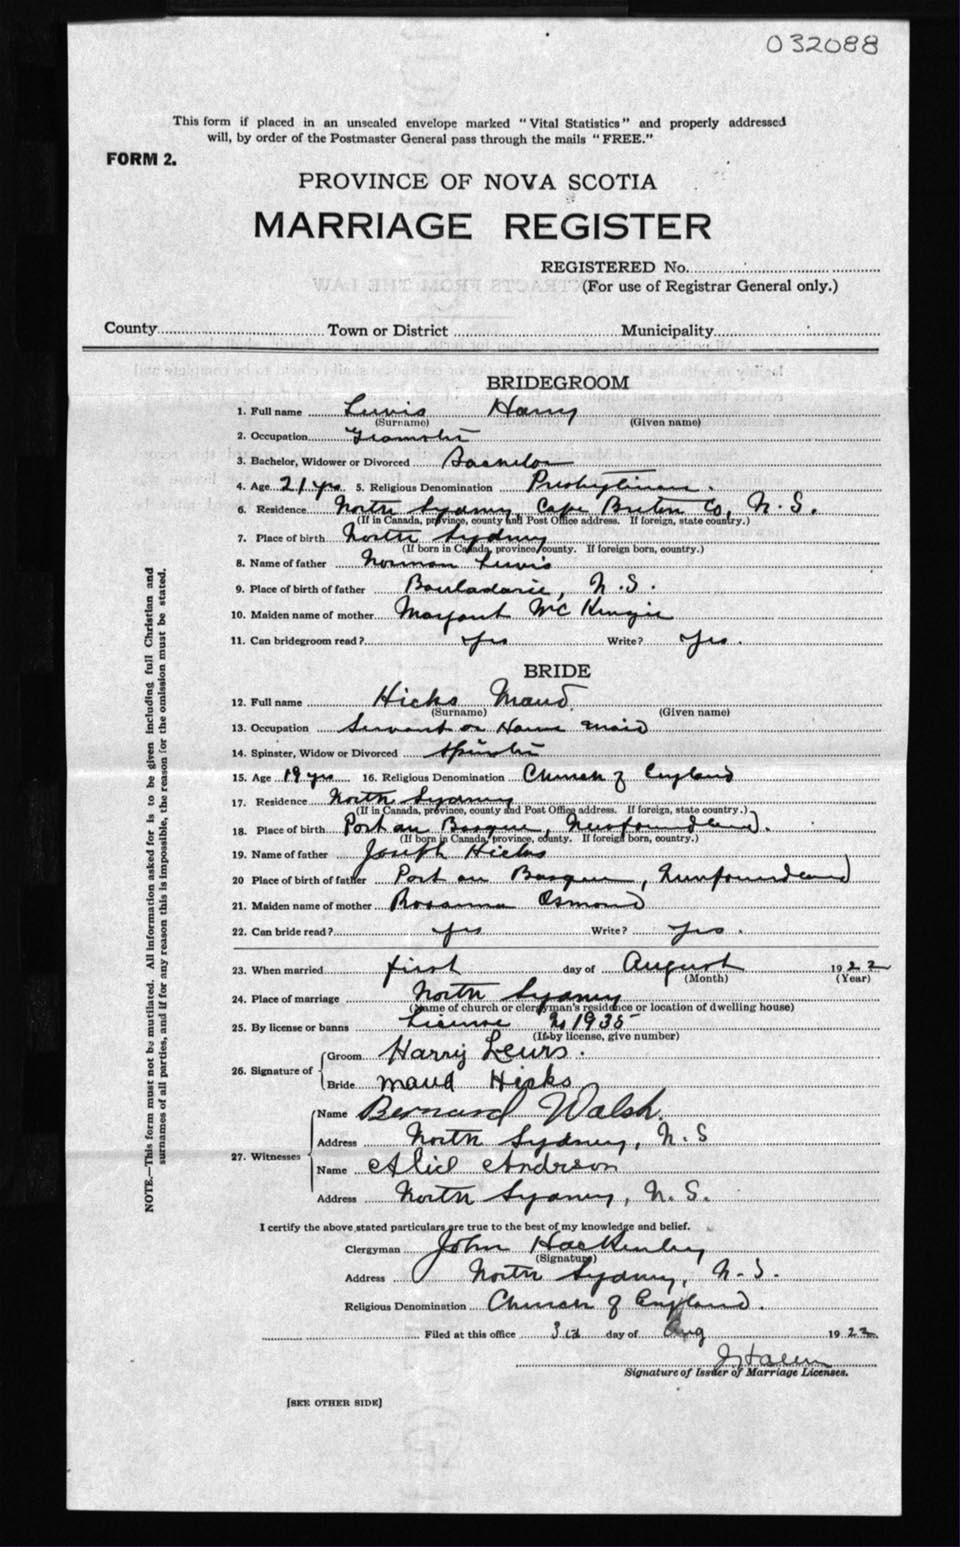 032088
This form if placed in an unsealed envelope marked "Vital Statistics" and properly addressed
will, by order of the Postmaster General pass through the mails "FREE."
FORM 2.
PROVINCE OF NOVA SCOTIA
MARRIAGE REGISTER
REGISTERED No.
(For use of Registrar General only.)
County Town or District Municipality
BRIDEGROOM
1. Full name Lewis Harry
(Surname) (Given name)
2. Occupation Teamster
3. Bachelor, Widower or Divorced Bachelor
4. Age 21 yrs 5. Religious Denomination Presbyterian.
6. Residence North Sydney, Cape Breton Co, N. S.
(If in Canada, province, county and Post Office address. If foreign, state country.)
7. Place of birth North Sydney
(If born in Canada, province, county. If foreign born, country.)
8. Name of father Norman Lewis
9. Place of birth of father Boularderie, N. S.
10. Maiden name of mother Margaret McKenzie
11. Can bridegroom read? yes Write? yes.
BRIDE
12. Full name Hicks Maud
(Surname) (Given name)
13. Occupation Servant or House maid
14. Spinster, Widow or Divorced Spinster
15. Age 19 yrs 16. Religious Denomination Church of England
17. Residence North Sydney
(If in Canada, province, county and Post Office address. If foreign, state country.)
18. Place of birth Port au Basque, Newfoundland.
(If born in Canada, province, county. If foreign born, country.)
19. Name of father Joseph Hicks
20 Place of birth of father Port au Basque, Newfoundland
21. Maiden name of mother Rosanna Osmond
22. Can bride read? yes Write? yes.
23. When married first day of August 1922
(Month) (Year)
24. Place of marriage North Sydney
(Name of church or clergyman's residence or location of dwelling house)
25. By license or banns License No 1935
(If by license, give number)
26. Signature of Groom Harry Lewis.
Bride Maud Hicks
27. Witnesses Name Bernard Walsh.
Address North Sydney, N. S
Name Alice
Address North Sydney, N. S.
I certify the above stated particulars are true to the best of my knowledge and belief.
Clergyman John Hackenley
(Signature)
Address North Sydney, N. S.
Religious Denomination Church of England.
Filed at this office 3rd day of Aug 1922
Signature of Issuer of Marriage Licenses.
[SEE OTHER SIDE]
NOTE.—This form must not be mutilated. All information asked for is to be given including full Christian and
surnames of all parties, and if for any reason this is impossible, the reason for the omission must be stated.